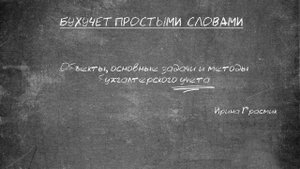 БУХУЧЕТ ПРОСТЫМИ СЛОВАМИ
Объекты, основные задачи и методы
бухгалтерского учета
Ирина